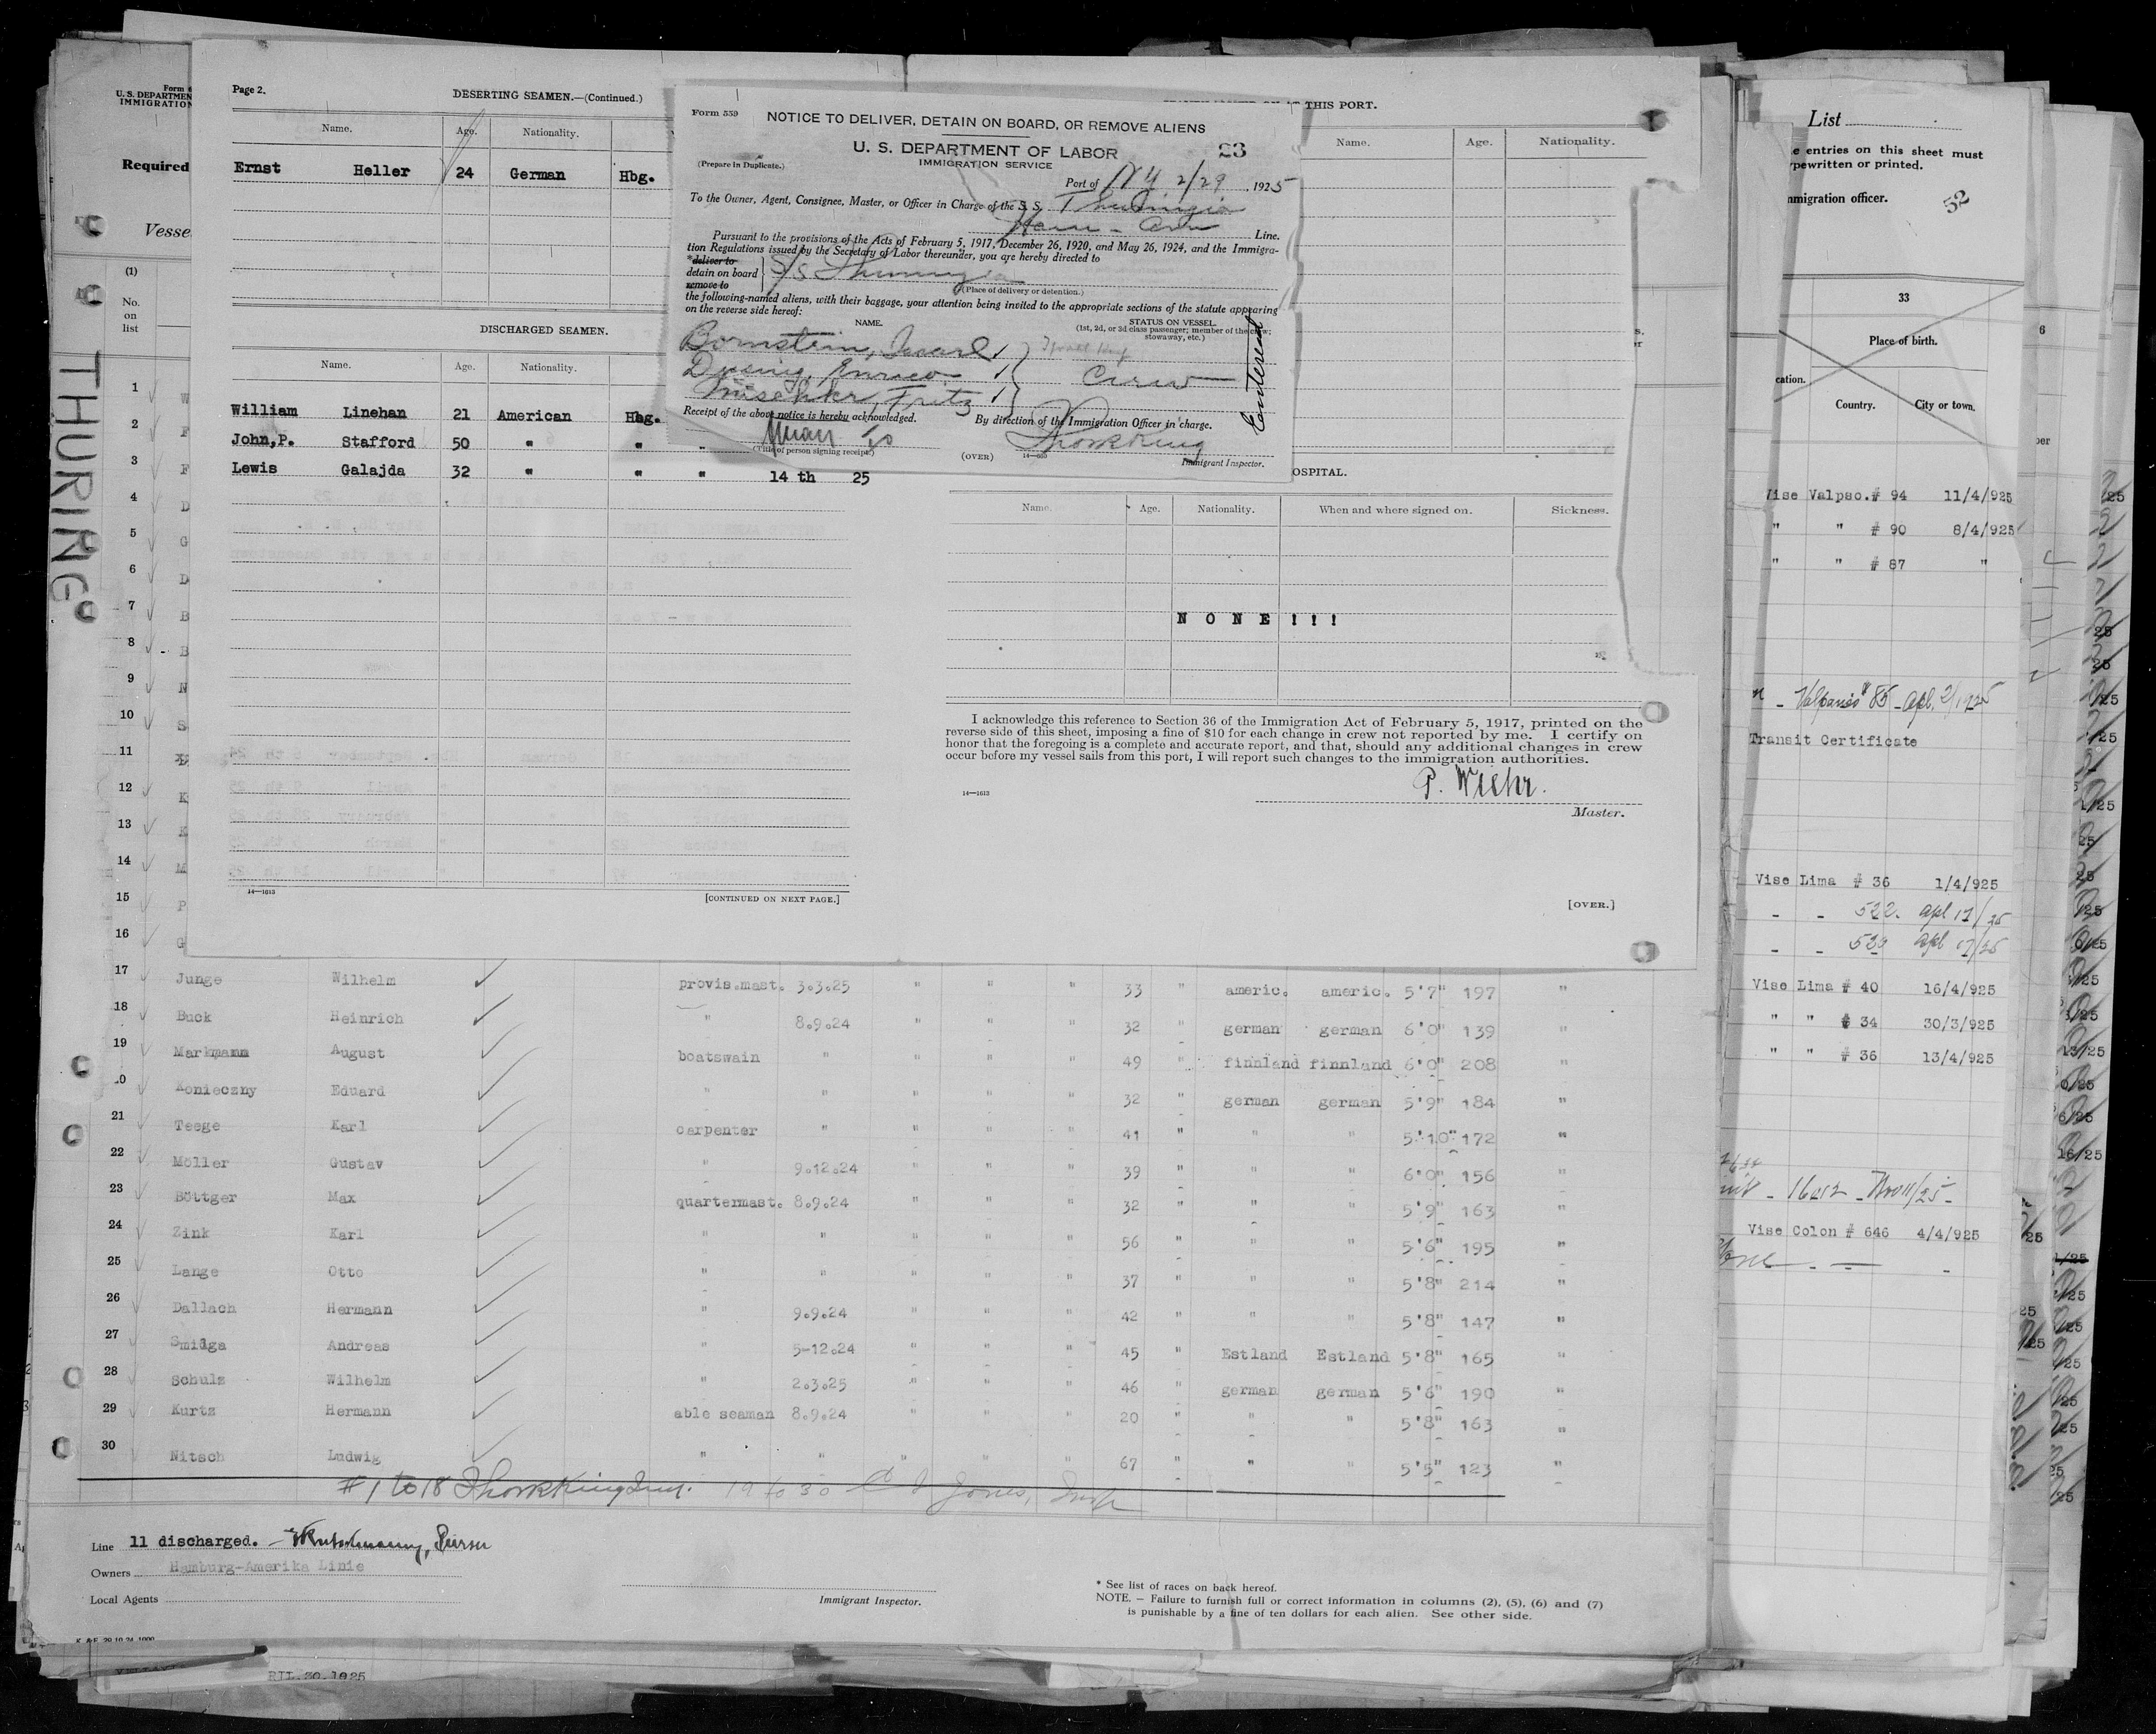 Page 2.
DESERTING SEAMEN.—(Continued.)
Name. Age. Nationality.
Ernst Heller 24 German Hbg.
DISCHARGED SEAMEN.
Name. Age. Nationality.
William Linehan 21 American Hbg.
John,P. Stafford 50 " " "
Lewis Galajda 32 " " " 14 th 25
14—1613
[CONTINUED ON NEXT PAGE.]
Form 559
NOTICE TO DELIVER, DETAIN ON BOARD, OR REMOVE ALIENS
U. S. DEPARTMENT OF LABOR 23
IMMIGRATION SERVICE
(Prepare in Duplicate.)
Port of N Y 2/29, 1925
To the Owner, Agent, Consignee, Master, or Officer in Charge of the S. S. Thuringia
Line.
Pursuant to the provisions of the Acts of February 5, 1917, December 26, 1920, and May 26, 1924, and the Immigra-
tion Regulations issued by the Secretary of Labor thereunder, you are hereby directed to
*deliver to
detain on board S/S Thuringia
remove to
(Place of delivery or detention.)
the following-named aliens, with their baggage, your attention being invited to the appropriate sections of the statute appearing
on the reverse side hereof:
NAME. STATUS ON VESSEL.
(1st, 2d, or 3d class passenger; member of the crew;
stowaway, etc.)
Bornstein,
Dusing, Enrico Crew
Mischker, Fritz
Entered
Receipt of the above notice is hereby acknowledged. By direction of the Immigration Officer in charge.
(Title of person signing receipt.) (OVER) Immigrant Inspector.
THIS PORT.
Name. Age. Nationality.
OSPITAL.
Name. Age. Nationality. When and where signed on. Sickness.
N O N E ! ! !
I acknowledge this reference to Section 36 of the Immigration Act of February 5, 1917, printed on the
reverse side of this sheet, imposing a fine of $10 for each change in crew not reported by me. I certify on
honor that the foregoing is a complete and accurate report, and that, should any additional changes in crew
occur before my vessel sails from this port, I will report such changes to the immigration authorities.
P. Wiehr.
14—1613
Master.
[OVER.]
U. S. DEPARTMEN
IMMIGRATION
Required
Vesse
THURING
(1)
No.
on
list
1
2
3
4
5
6
7
8
9
10
11
12
13
14
15
16
17 Junge Wilhelm provis.mast. 3.3.25 " " " 33 " americ. americ. 5'7" 197 "
18 Buck Heinrich " 8.9.24 " " " 32 " german german 6'0" 139 "
19 Markmann August boatswain " " " " 49 " finnland finnland 6'0" 208 "
20 Konieczny Eduard " " " " " 32 " german german 5'9" 184 "
21 Teege Karl carpenter " " " " 41 " " " 5'10" 172 "
22 Möller Gustav " 9.12.24 " " " 39 " " " 6'0" 156 "
23 Böttger Max quartermast. 8.9.24 " " " 32 " " " 5'9" 163 "
24 Zink Karl " " " " " 56 " " " 5'6" 195 "
25 Lange Otto " " " " " 37 " " " 5'8" 214 "
26 Dallach Hermann " 9.9.24 " " " 42 " " " 5'8" 147 "
27 Smidga Andreas " 5-12.24 " " " 45 " Estland Estland 5'8" 165 "
28 Schulz Wilhelm " 2.3.25 " " " 46 " german german 5'6" 190 "
29 Kurtz Hermann able seaman 8.9.24 " " " 20 " " " 5'8" 163 "
30 Nitsch Ludwig " " " " " 67 " " " 5'5" 123 "
# 1 to 18 Thos K King Insp. 19 to 30 Jones, Insp
Line 11 discharged.
Owners Hamburg-Amerika Linie
Local Agents
Immigrant Inspector.
* See list of races on back hereof.
NOTE. — Failure to furnish full or correct information in columns (2), (5), (6) and (7)
is punishable by a fine of ten dollars for each alien. See other side.
RIL.30.1925
List
e entries on this sheet must
ypewritten or printed.
mmigration officer.
52
33
Place of birth.
cation.
Country. City or town.
Vise Valpso.# 94 11/4/925
" " # 90 8/4/925
" " # 87 "
- Valparaiso # 85 - apl. 2/1925
Transit Certificate
Vise Lima # 36 1/4/925
- - 522. apl 17/25
- - 539 apl 17/25
Vise Lima # 40 16/4/925
" " # 34 30/3/925
" " # 36 13/4/925
Vise Colon # 646 4/4/925